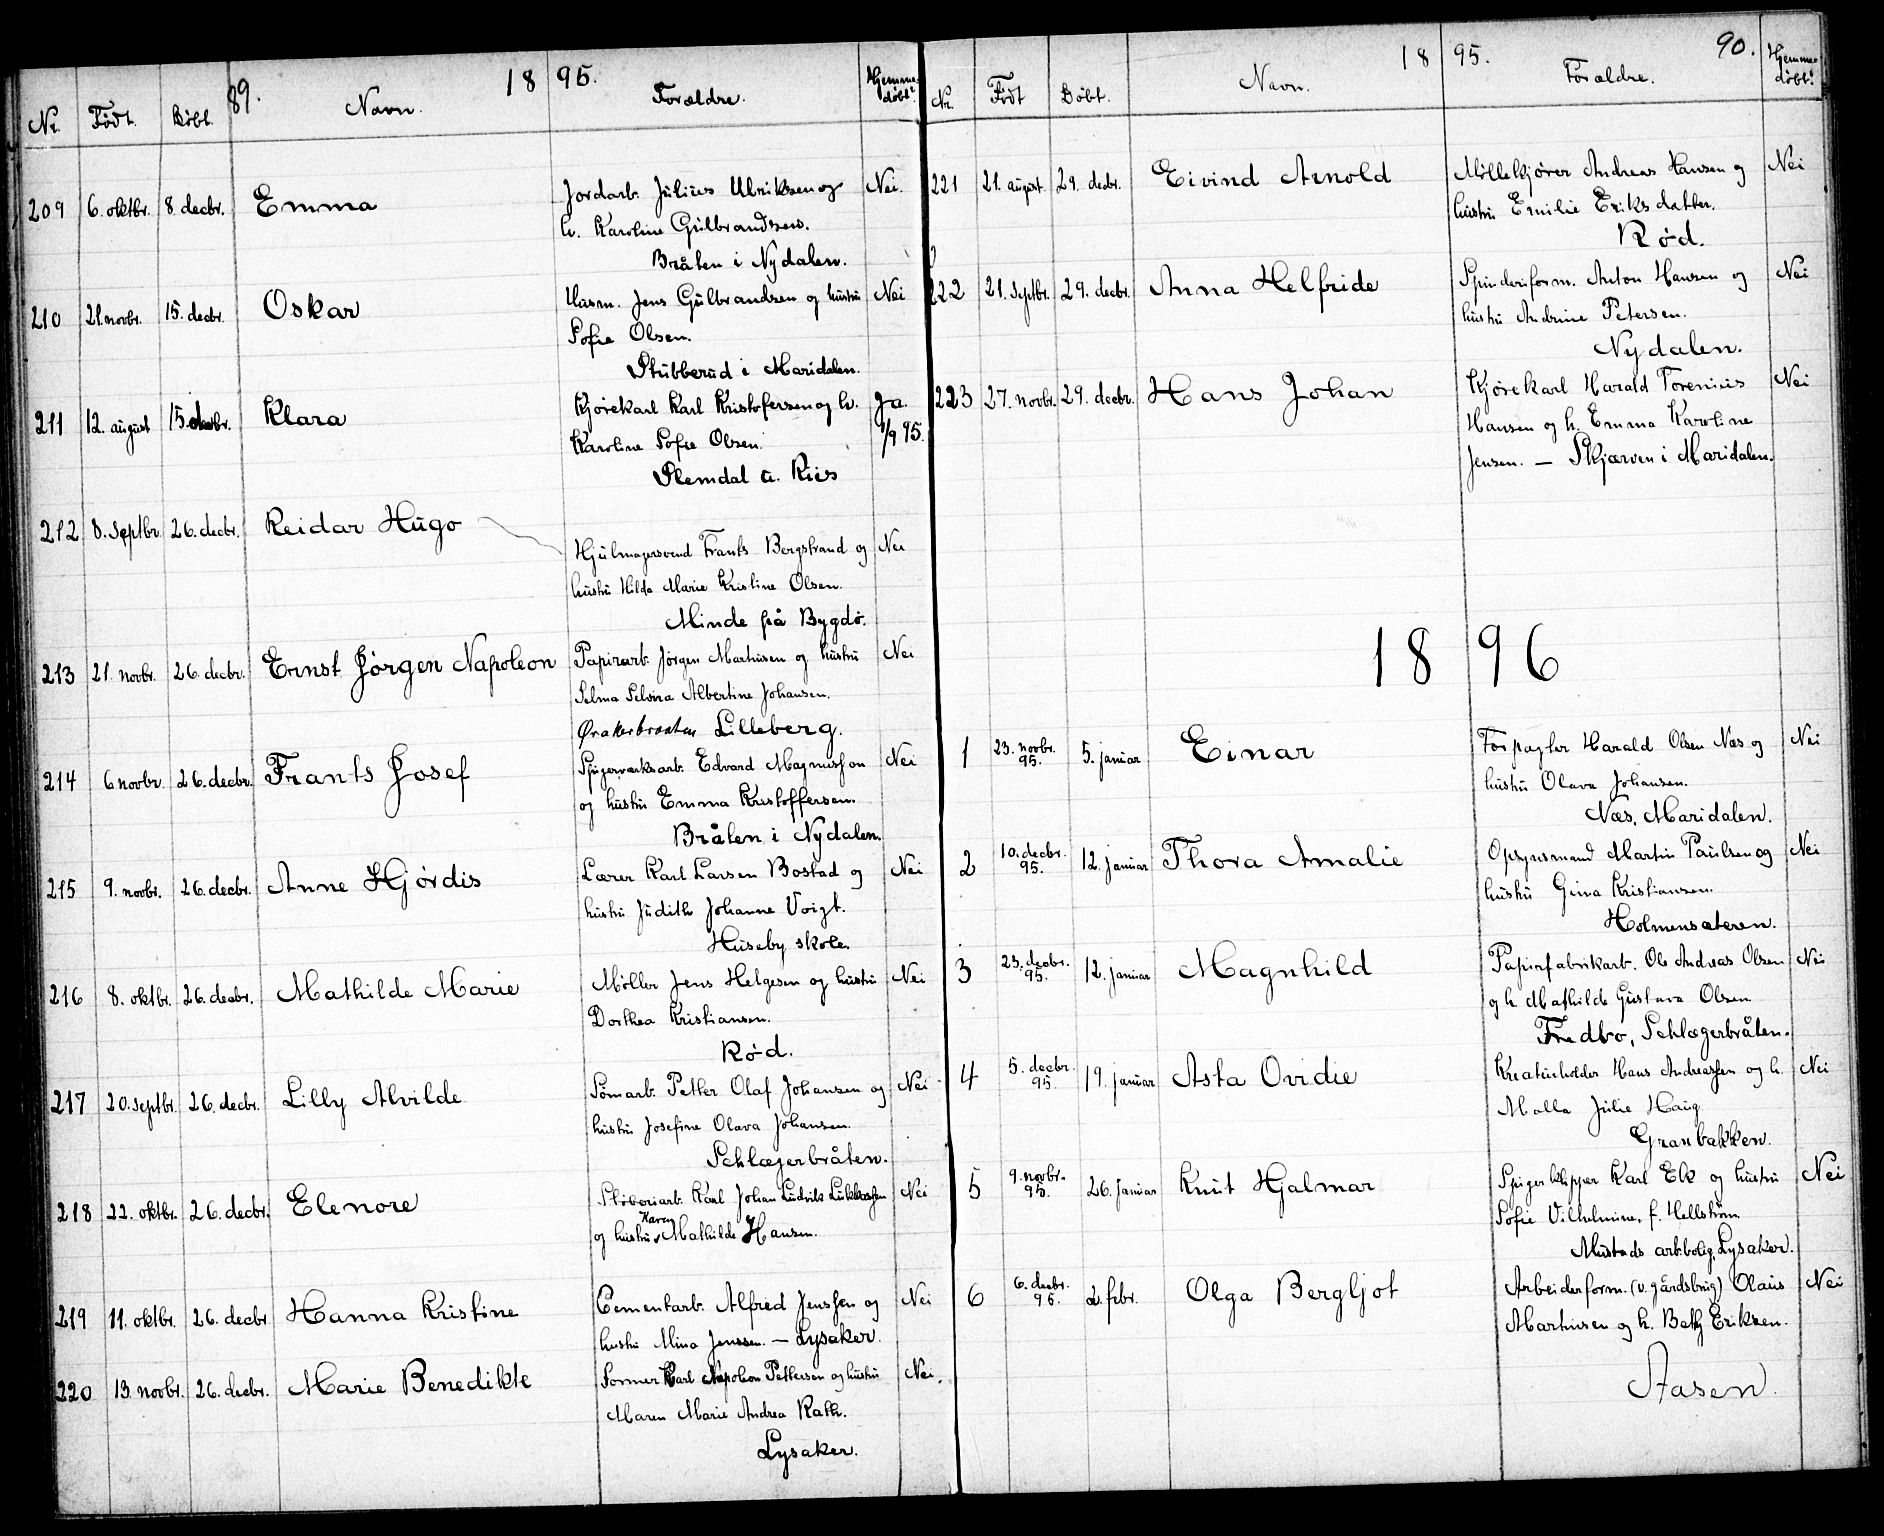 89.
18 95.
Nr. Født. Døbt. Navn. Forældre. Hjemmedøbt?
209 6. oktbr. 8. decbr. Emma Jordarb. Julius Ulriksen og Nei.
h. Karoline Gulbrandsen.
Bråten i Nydalen.
210 21. novbr. 15. decbr. Oskar Husm. Jens Gulbrandsen og hustru Nei
Sofie Olsen.
Stubberud i Maridalen.
211 12. august 15. decbr. Klara Kjørekarl Karl Kristofersen og h. Ja.
Karoline Sofie Olsen. 1/9 95.
Slemdal u. Riis
212 8. septbr. 26. decbr. Reidar Hugo
Hjulmagersvend Frants Bergstrand og Nei
hustru Hilda Marie Kristine Olsen.
Minde på Bygdø.
213 21. novbr. 26. decbr. Ernst Jørgen Napoleon Papirarb. Jørgen Marthinsen og hustru Nei
Selma Selvira Albertine Johansen.
Ørakerbraaten Lilleberg.
214 6 novbr. 26. decbr. Frants Josef Spigerverksarb. Edvard Magnussen Nei
og hustru Emma Kristoffersen.
Bråten i Nydalen.
215 9. novbr. 26. decbr. Anne Hjørdis Lærer Karl Larsen Bostad og Nei
hustru Judith Johanne Voigt.
Huseby skole.
216 8. oktbr. 26. decbr. Mathilde Marie Møller Jens Helgesen og hustru Nei
Dorthea Kristiansen.
Rød.
217 20. septbr. 26. decbr. Lilly Alvilde Sømarb. Petter Olaf Johansen og Nei
hustru Josefine Olava Johansen.
Schlægerbråten.
218 22. oktbr. 26. decbr. Elenore Sliberiarb. Karl Johan Ludvik Lukkassen Nei
Karen
og hustru Mathilde Hansen.
219 11. oktbr. 26. decbr. Hanna Kristine Cementarb. Alfred Jenssen og Nei
hustru Mina Jenssen. — Lysaker.
220 13. novbr. 26. decbr. Marie Benedikte Former Karl Napoleon Pettersen og hustru Nei.
Maren Marie Andrea Rath.
Lysaker.
18 95. 90.
Nr. Født Døbt. Navn. Forældre. Hjemmedøbt?
221 21. august. 29. decbr. Eivind Arnold Møllekjører Andreas Hansen og Nei
hustru Emilie Eriksdatter.
Rød.
222 21. septbr. 29. decbr. Anna Helfride Spinderiform. Anton Hansen og Nei
hustru Andrine Petersen.
Nydalen.
223 27. novbr. 29. decbr. Hans Johan Kjørekarl Harald Torenius Nei
Hansen og h. Emma Karoline
Jensen. — Skjærven i Maridalen.
18 96
1 23. novbr. 95. 5. januar Einar Forpagter Harald Olsen Næs og Nei
hustru Olava Johansen.
Næs, Maridalen.
2 10. decbr. 95. 12. januar Thora Amalie Opsynsmand Martin Paulsen og Nei
hustru Gina Kristiansen.
Holmensæteren.
3 23. decbr. 95. 12. januar Magnhild Papirfabrikarb. Ole Andreas Olsen Nei
og h. Mathilde Gustava Olsen
Fredbo, Schlægerbråten.
4 5. decbr. 95. 19. januar Asta Ovidie Kreaturholder Hans Andreassen og h. Nei
Malla Julie Haug.
Granbakken.
5 9. novbr. 95. 26. januar Knut Hjalmar Spigerklipper Karl Ek og hustru Nei
Sofie Vilhelmine, f. Hellstrøm.
Mustads arb.bolig, Lysaker.
6 6. decbr. 95. 2. febr. Olga Bergljot Arbeiderform. (v. gårdsbrug) Olaus Nei
Marthinsen og h. Berthe Eriksen.
Aasen.